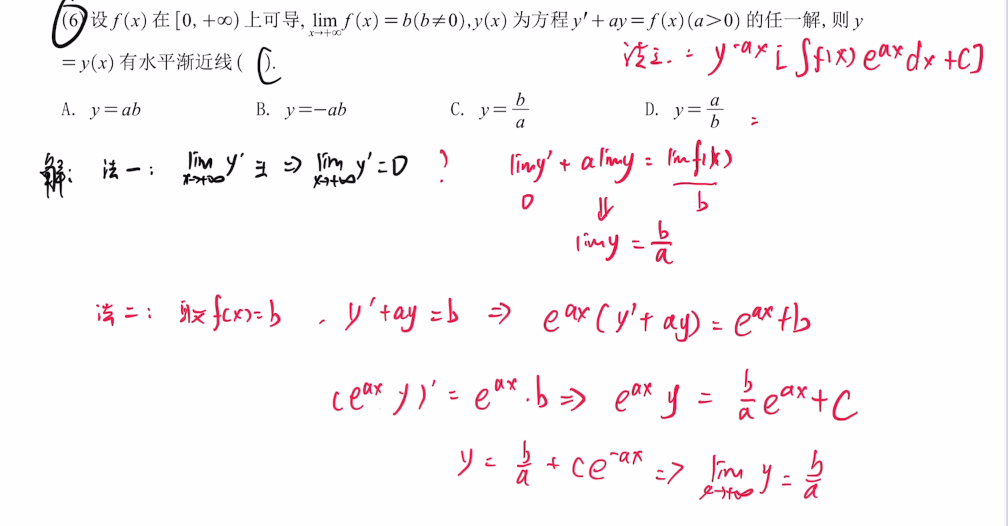 (6) 设 f(x) 在 [0, +∞) 上可导, lim_{x→+∞} f(x) = b(b≠0), y(x) 为方程 y′+ay=f(x)(a>0) 的任一解, 则 y
=y(x) 有水平渐近线( C ).
y^{-ax} [∫f(x) e^{ax} dx + C]
A. y=ab B. y=-ab C. y=b/a D. y=a/b =
解: 法一: lim_{x→+∞} y′ ∃ ⇒ lim_{x→+∞} y′=0 ? lim y′ + a lim y = lim f(x)
0 ⇓ b
lim y = b/a
法二: 取 f(x)=b , y′+ay=b ⇒ e^{ax}(y′+ay)=e^{ax}+b
(e^{ax} y)′ = e^{ax}·b ⇒ e^{ax} y = b/a e^{ax}+C
y = b/a + Ce^{-ax} ⇒ lim_{x→+∞} y = b/a